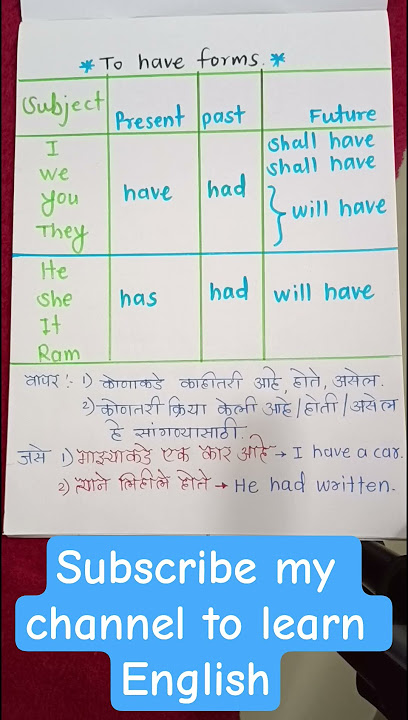 *To have forms.*
Subject Present past Future
I shall have
we shall have
you have had will have
They
He
she has had will have
It
Ram
वापर :- 1) कोणाकडे काहीतरी आहे, होते, असेल.
2) कोणतरी क्रिया केली आहे/होती/असेल
हे सांगण्यासाठी.
जसे 1) माझ्याकडे एक कार आहे → I have a car.
2) त्याने लिहीले होते → He had written.
Subscribe my
channel to learn
English